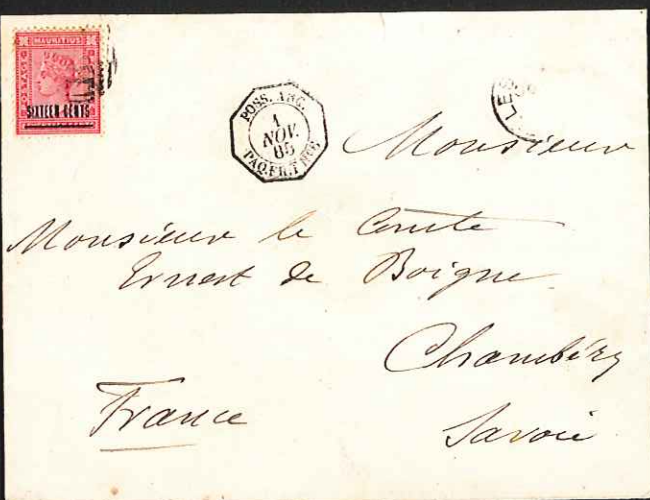 MAURITIUS
SIXTEEN CENTS
POSS. ANG.
1
NOV.
85
PAQ. FR. T
LES
Monsieur
Monsieur le Comte
Ernest de Boigne
Chambéry
France
Savoie